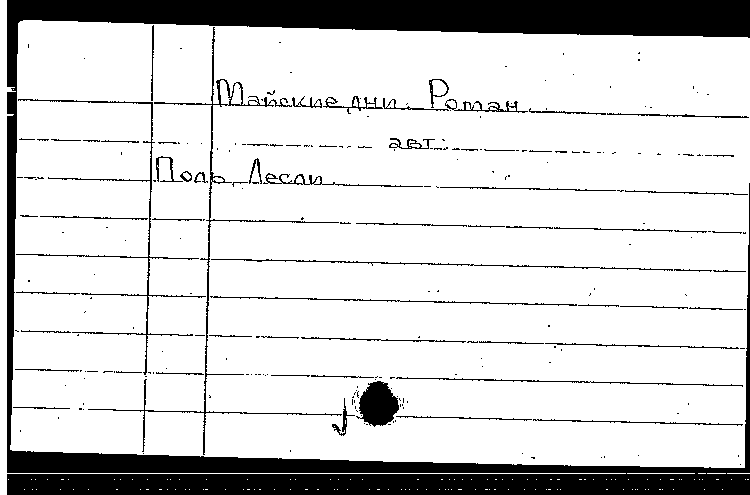 Майские дни. Роман.
авт:
Поль, Лесли.